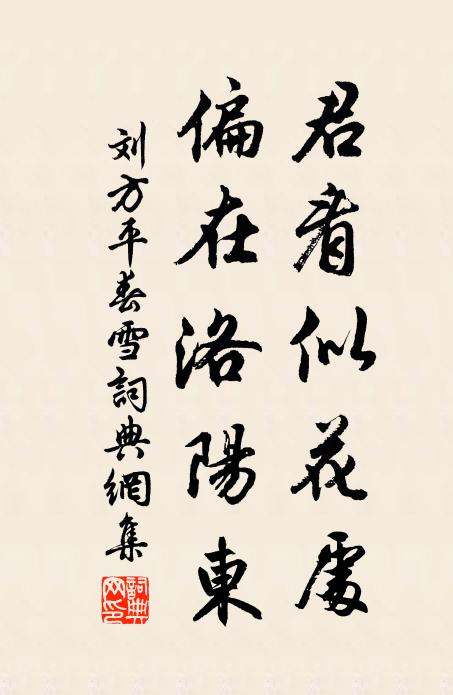 君看似花處
偏在洛陽東
刘方平春雪詞典網集
詞典网印